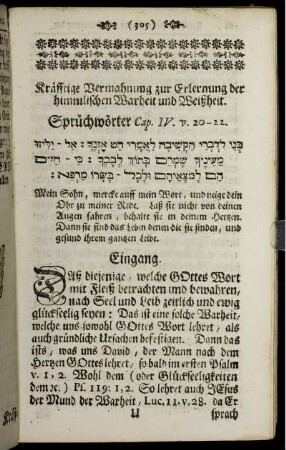 (305)
Kräfftige Vermahnung zur Erlernung der
himmlischen Warheit und Weißheit.
Sprüchwörter Cap. IV. v. 20-22.
בְּנִי לִדְבָרַי הַקְשִׁיבָה לַאֲמָרַי הַט אָזְנֶךָ: אַל־יַלִּיזוּ
מֵעֵינֶיךָ שָׁמְרֵם בְּתוֹךְ לְבָבֶךָ: כִּי־חַיִּים
הֵם לְמֹצְאֵיהֶם וּלְכָל־בְּשָׂרוֹ מַרְפֵּא:
Mein Sohn, mercke auff mein Wort, und neige dein
Ohr zu meiner Rede. Laß sie nicht von deinen
Augen fahren, behalte sie in deinem Hertzen.
Dann sie sind das Leben denen die sie finden, und
gesund ihrem gantzen Leibe.
Eingang.
Daß diejenige, welche GOttes Wort
mit Fleiß betrachten und bewahren,
nach Seel und Leib zeitlich und ewig
glückseelig seyen: Das ist eine solche Warheit,
welche uns sowohl GOttes Wort lehret, als
auch gründliche Ursachen befestigen. Dann das
ists, was uns David, der Mann nach dem
Hertzen GOttes lehret, so bald im ersten Psalm
v. 1, 2. Wohl dem (oder Glückseeligkeiten
dem ꝛc.) Ps. 119: 1, 2. So lehret auch JEsus
der Mund der Warheit, Luc. 11. v. 28. da Er
U sprach